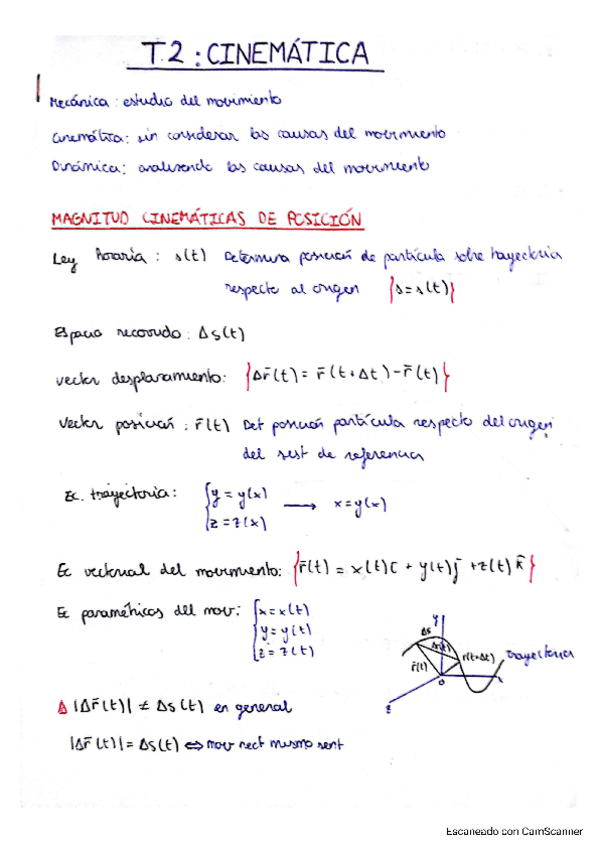 T.2 : CINEMÁTICA
Mecánica : estudio del movimiento
Cinemática: sin considerar las causas del movimiento
Dinámica: analizando las causas del movimiento
MAGNITUD CINEMÁTICAS DE POSICIÓN
Ley horaria : s(t) Determina posición de partícula sobre trayectoria
respecto al origen {s=s(t)}
Espacio recorrido: Δs(t)
vector desplazamiento: {Δr̄(t) = r̄(t+Δt)-r̄(t)}
Vector posición : r̄(t) Det posición partícula respecto del origen
del sist de referencia
Ec. trayectoria: {y = y(x)
z = z(x)
→ x=y(x)
Ec vectorial del movimiento: {r̄(t) = x(t)ī + y(t)j̄ +z(t)k̄}
Ec paramétricas del mov: {x=x(t)
y=y(t)
z=z(t)
y
Δs
Δr(t)
r̄(t)
r(t+Δt)
trayectoria
x
O
z
Δ |Δr̄(t)| ≠ Δs(t) en general
|Δr̄(t)| = Δs(t) ⇔ mov rect mismo sent
Escaneado con CamScanner